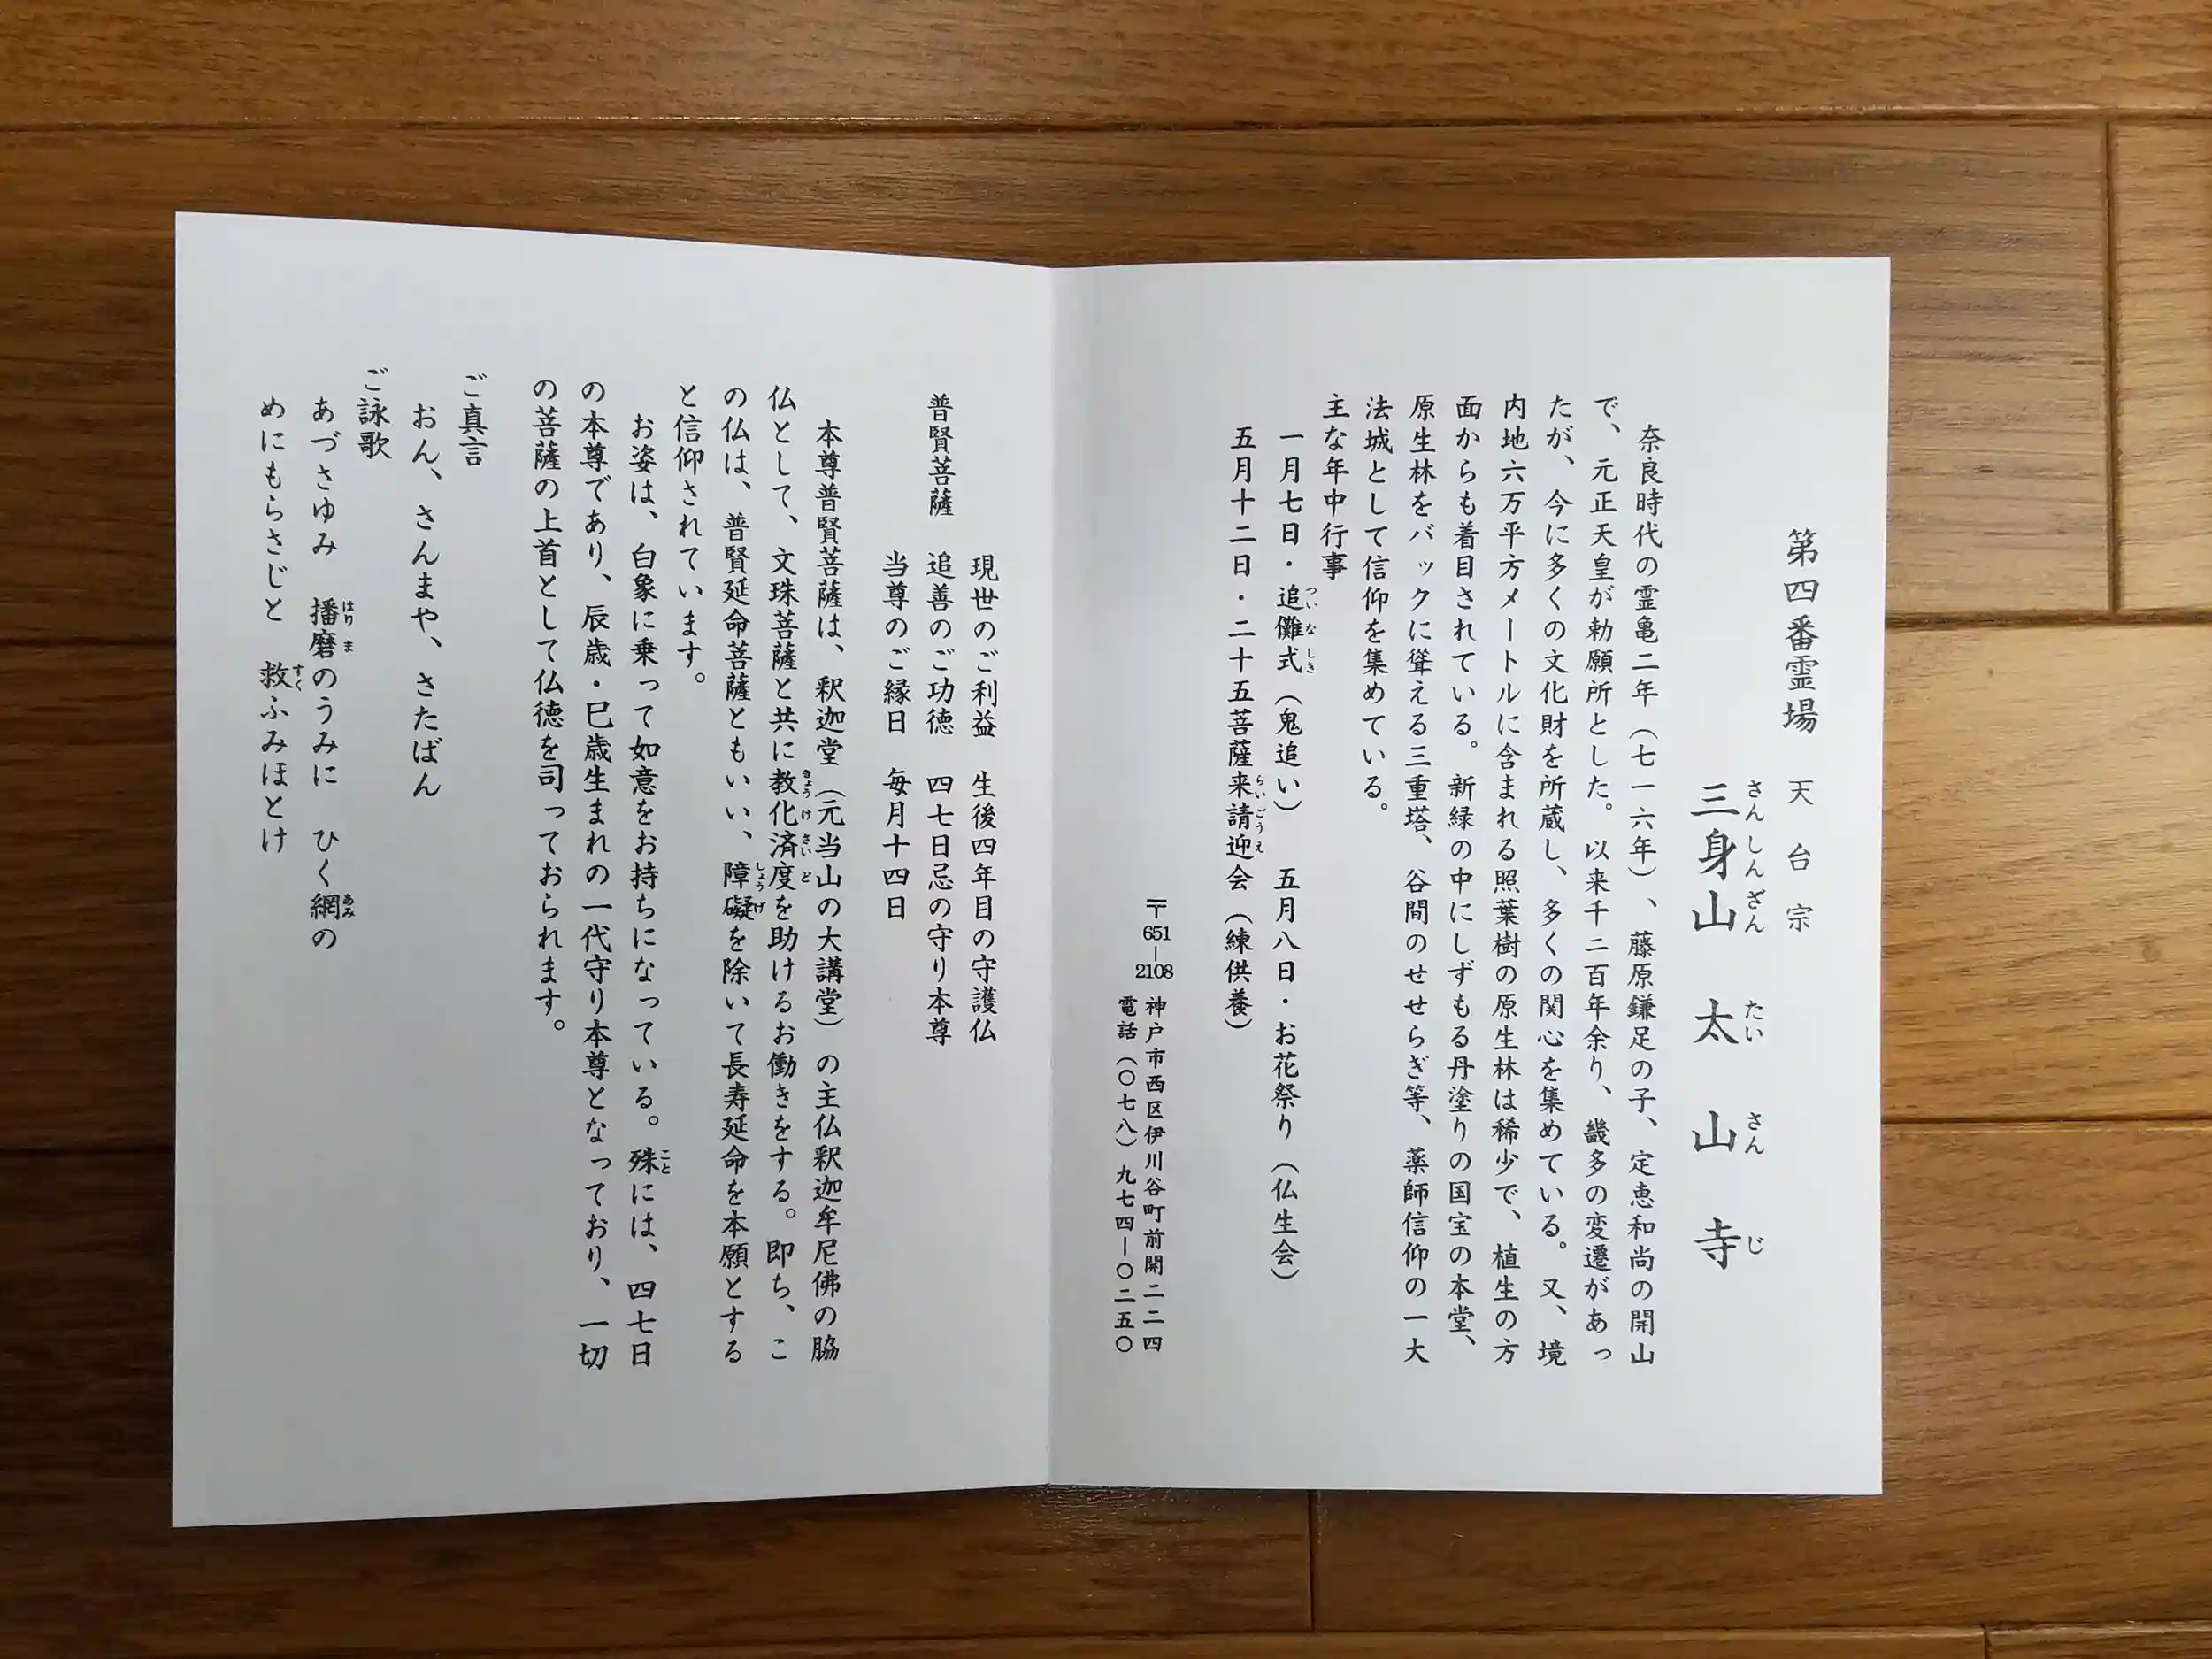 第四番霊場　天台宗
三身山　太山寺
さんしんざん　たいさんじ
奈良時代の霊亀二年（七一六年）、藤原鎌足の子、定恵和尚の開山
で、元正天皇が勅願所とした。以来千二百年余り、畿多の変遷があっ
たが、今に多くの文化財を所蔵し、多くの関心を集めている。又、境
内地六万平方メートルに含まれる照葉樹の原生林は稀少で、植生の方
面からも着目されている。新緑の中にしずもる丹塗りの国宝の本堂、
原生林をバックに聳える三重塔、谷間のせせらぎ等、薬師信仰の一大
法城として信仰を集めている。
主な年中行事
一月七日・追儺式（鬼追い）　五月八日・お花祭り（仏生会）
ついなしき
五月十二日・二十五菩薩来請迎会（練供養）
らいごうえ
〒651-2108　神戸市西区伊川谷町前開二二四
電話（〇七八）九七四ー〇二五〇
現世のご利益　生後四年目の守護仏
普賢菩薩　追善のご功徳　四七日忌の守り本尊
当尊のご縁日　毎月十四日
本尊普賢菩薩は、釈迦堂（元当山の大講堂）の主仏釈迦牟尼佛の脇
仏として、文珠菩薩と共に教化済度を助けるお働きをする。即ち、こ
きょうけさいど
の仏は、普賢延命菩薩ともいい、障礙を除いて長寿延命を本願とする
しょうげ
と信仰されています。
お姿は、白象に乗って如意をお持ちになっている。殊には、四七日
こと
の本尊であり、辰歳・巳歳生まれの一代守り本尊となっており、一切
の菩薩の上首として仏徳を司っておられます。
ご真言
おん、さんまや、さたばん
ご詠歌
あづさゆみ　播磨のうみに　ひく網の
はりま　あみ
めにもらさじと　救ふみほとけ
すく